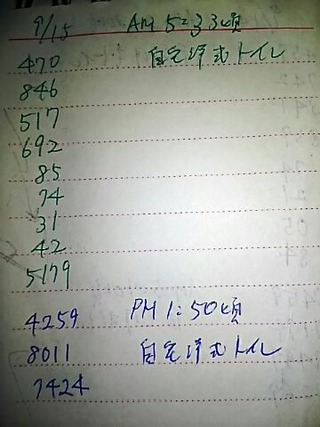 9/15 AM 5:33頃
470 自宅洋式トイレ
846
517
692
85
74
31
42
5179
4259 PM 1:50頃
8011 自宅洋式トイレ
7424